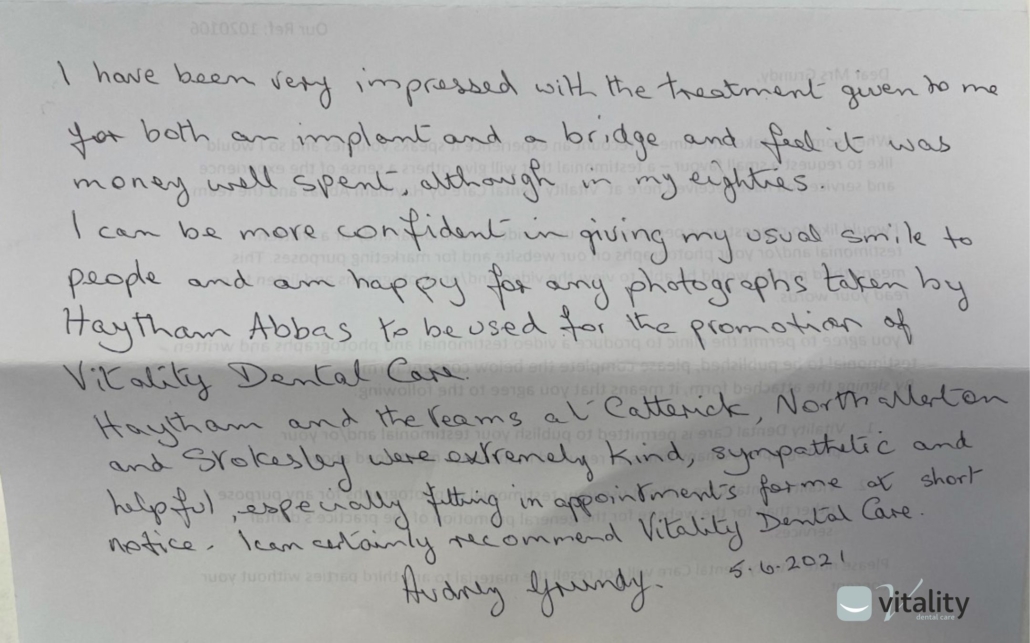 I have been very impressed with the treatment given to me
for both an implant and a bridge and feel it was
money well spent, although in my eighties.
I can be more confident in giving my usual smile to
people and am happy for any photographs taken by
Haytham Abbas to be used for the promotion of
Vitality Dental Care.
Haytham and the teams at Catterick, Northallerton
and Stokesley were extremely kind, sympathetic and
helpful, especially fitting in appointments for me at short
notice. I can certainly recommend Vitality Dental Care.
5.6.2021
Audrey Grundy.
vitality
dental care